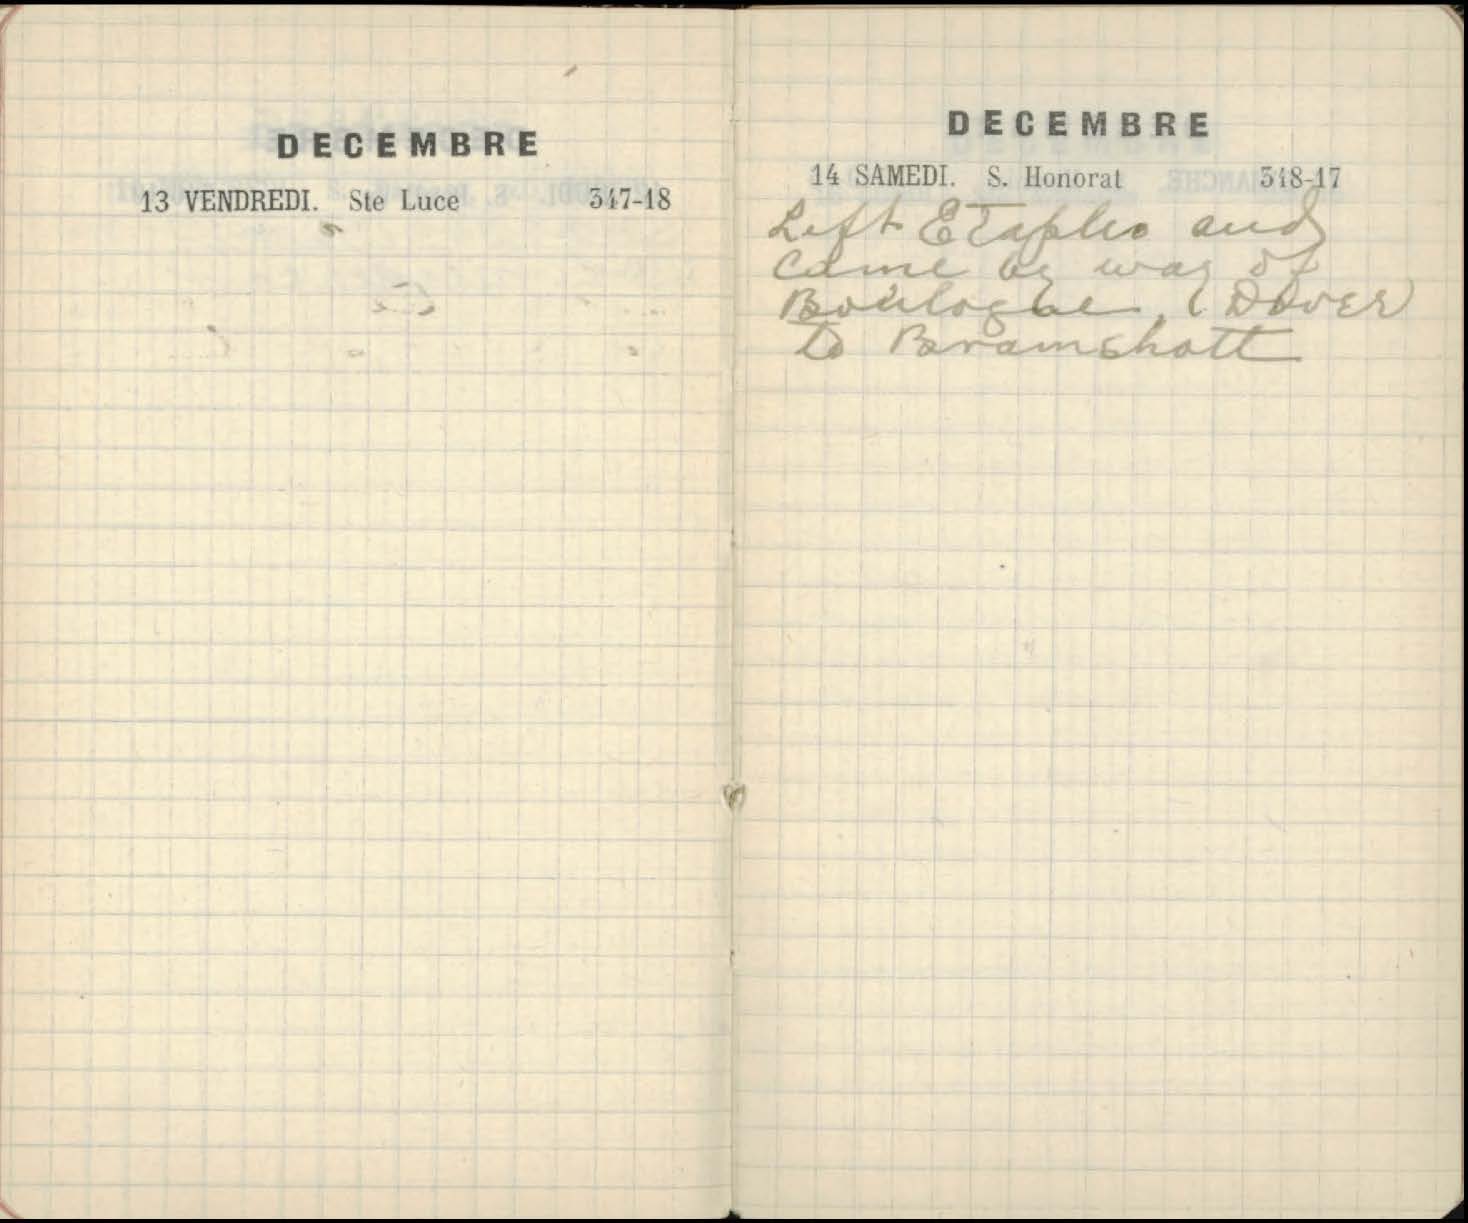 DECEMBRE
13 VENDREDI. Ste Luce 347-18
DECEMBRE
14 SAMEDI. S. Honorat 348-17
Left Etaples and
came by way of
Boulogne, & Dover
to Bramshott